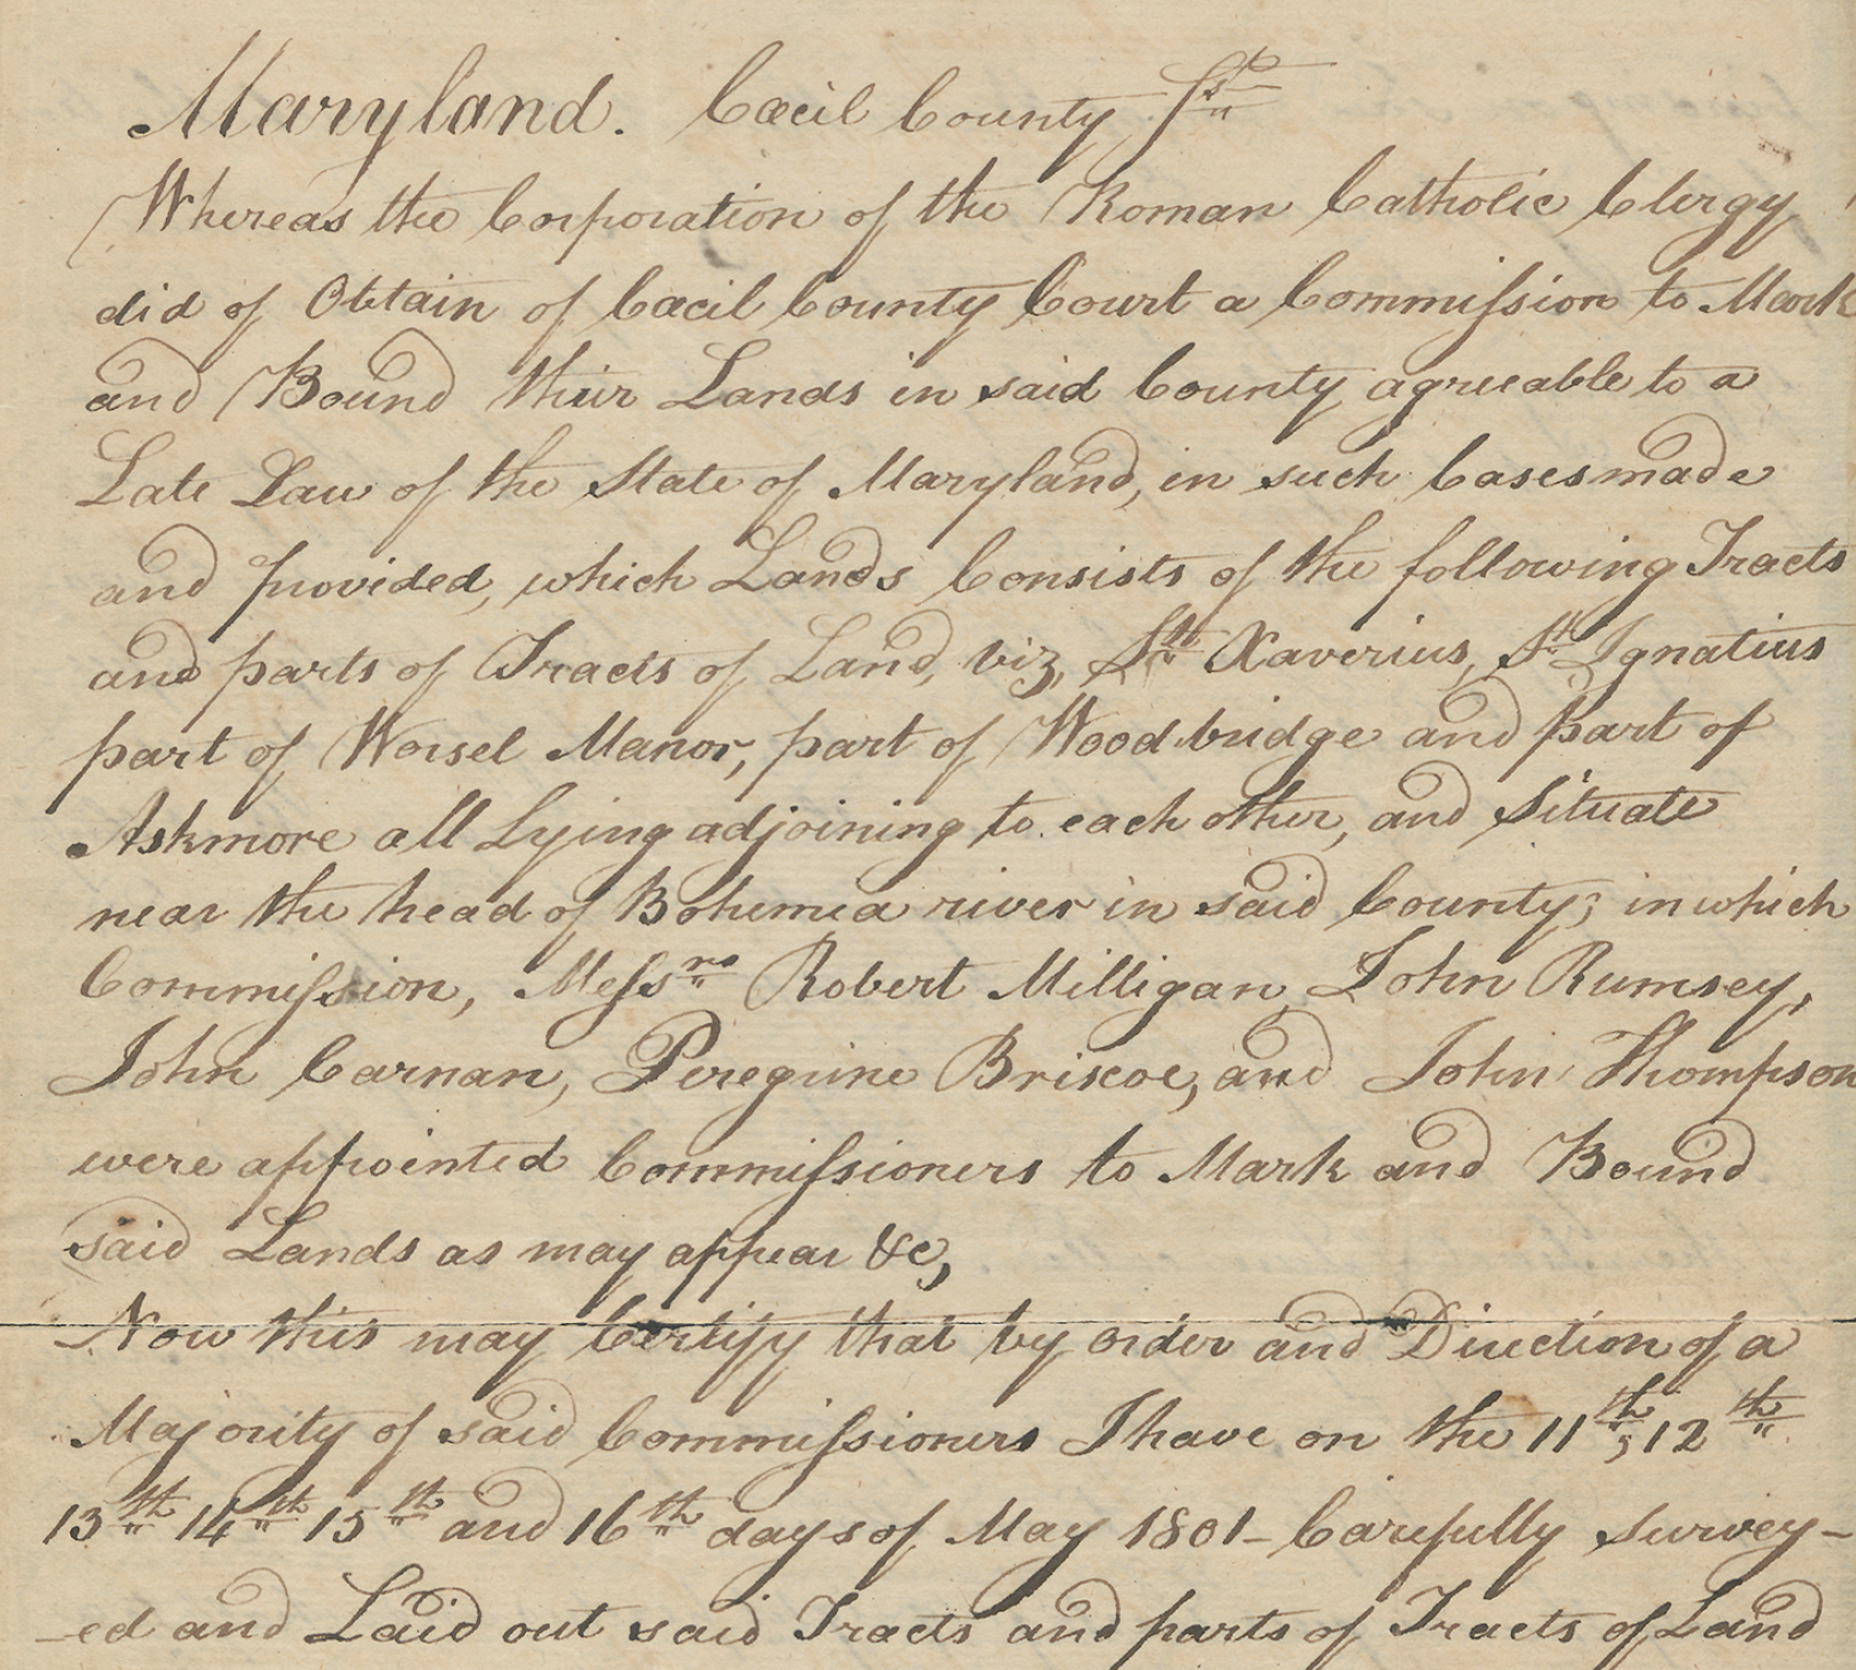 Maryland. Cæcil County Sst
Whereas the Corporation of the Roman Catholic Clergy
did of Obtain of Cæcil County Court a Commission to Mark
and Bound their Lands in said County agreeable to a
Late Law of the State of Maryland, in such Cases made
and provided, which Lands Consists of the following Tracts
and parts of Tracts of Land, viz, St. Xaverius, St. Ignatius
part of Worsel Manor, part of Woodbridge and part of
Askmore all Lying adjoining to each other, and Situate
near the head of Bohemea river in said County; in which
Commission, Messrs Robert Milligan, John Rumsey,
John Carnan, Peregrine Briscoe, and John Thompson
were appointed Commissioners to Mark and Bound
said Lands as may appear &c,
Now this may Certify that by order and Direction of a
Majority of said Commissioners I have on the 11th, 12th
13th 14th 15th and 16th days of May 1801 - Carefully survey-
-ed and Laid out said Tracts and parts of Tracts of Land